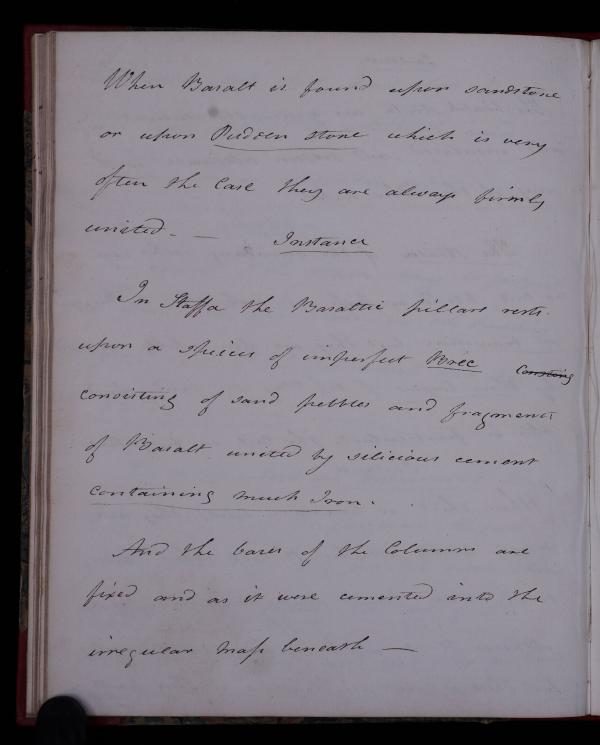 When Basalt is found upon sandstone
or upon Pudden stone which is very
often the Case they are always firmly
united. —
Instance
In Staffa the Basaltic pillars rests
upon a species of imperfect Brec Consting
consisting of sand pebbles and fragments
of Basalt united by silicious cement
containing much Iron.
And the bases of the Columns are
fixed and as it were cemented into the
irregular mass beneath —